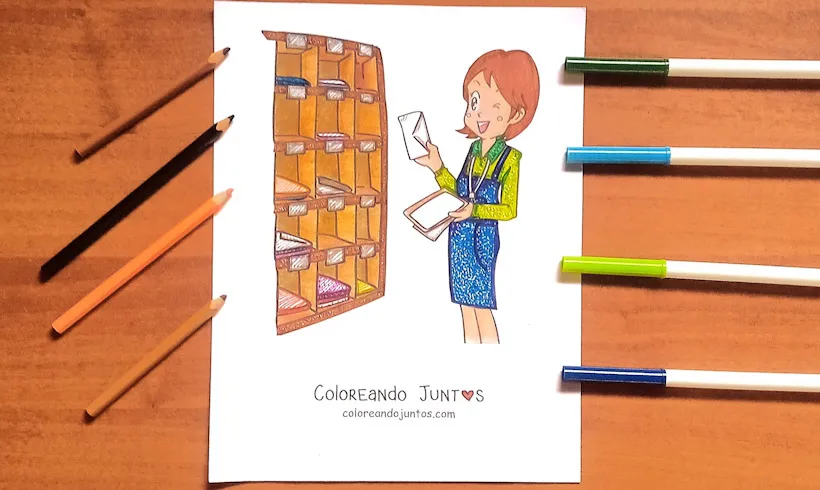 Coloreando Juntos
coloreandojuntos.com